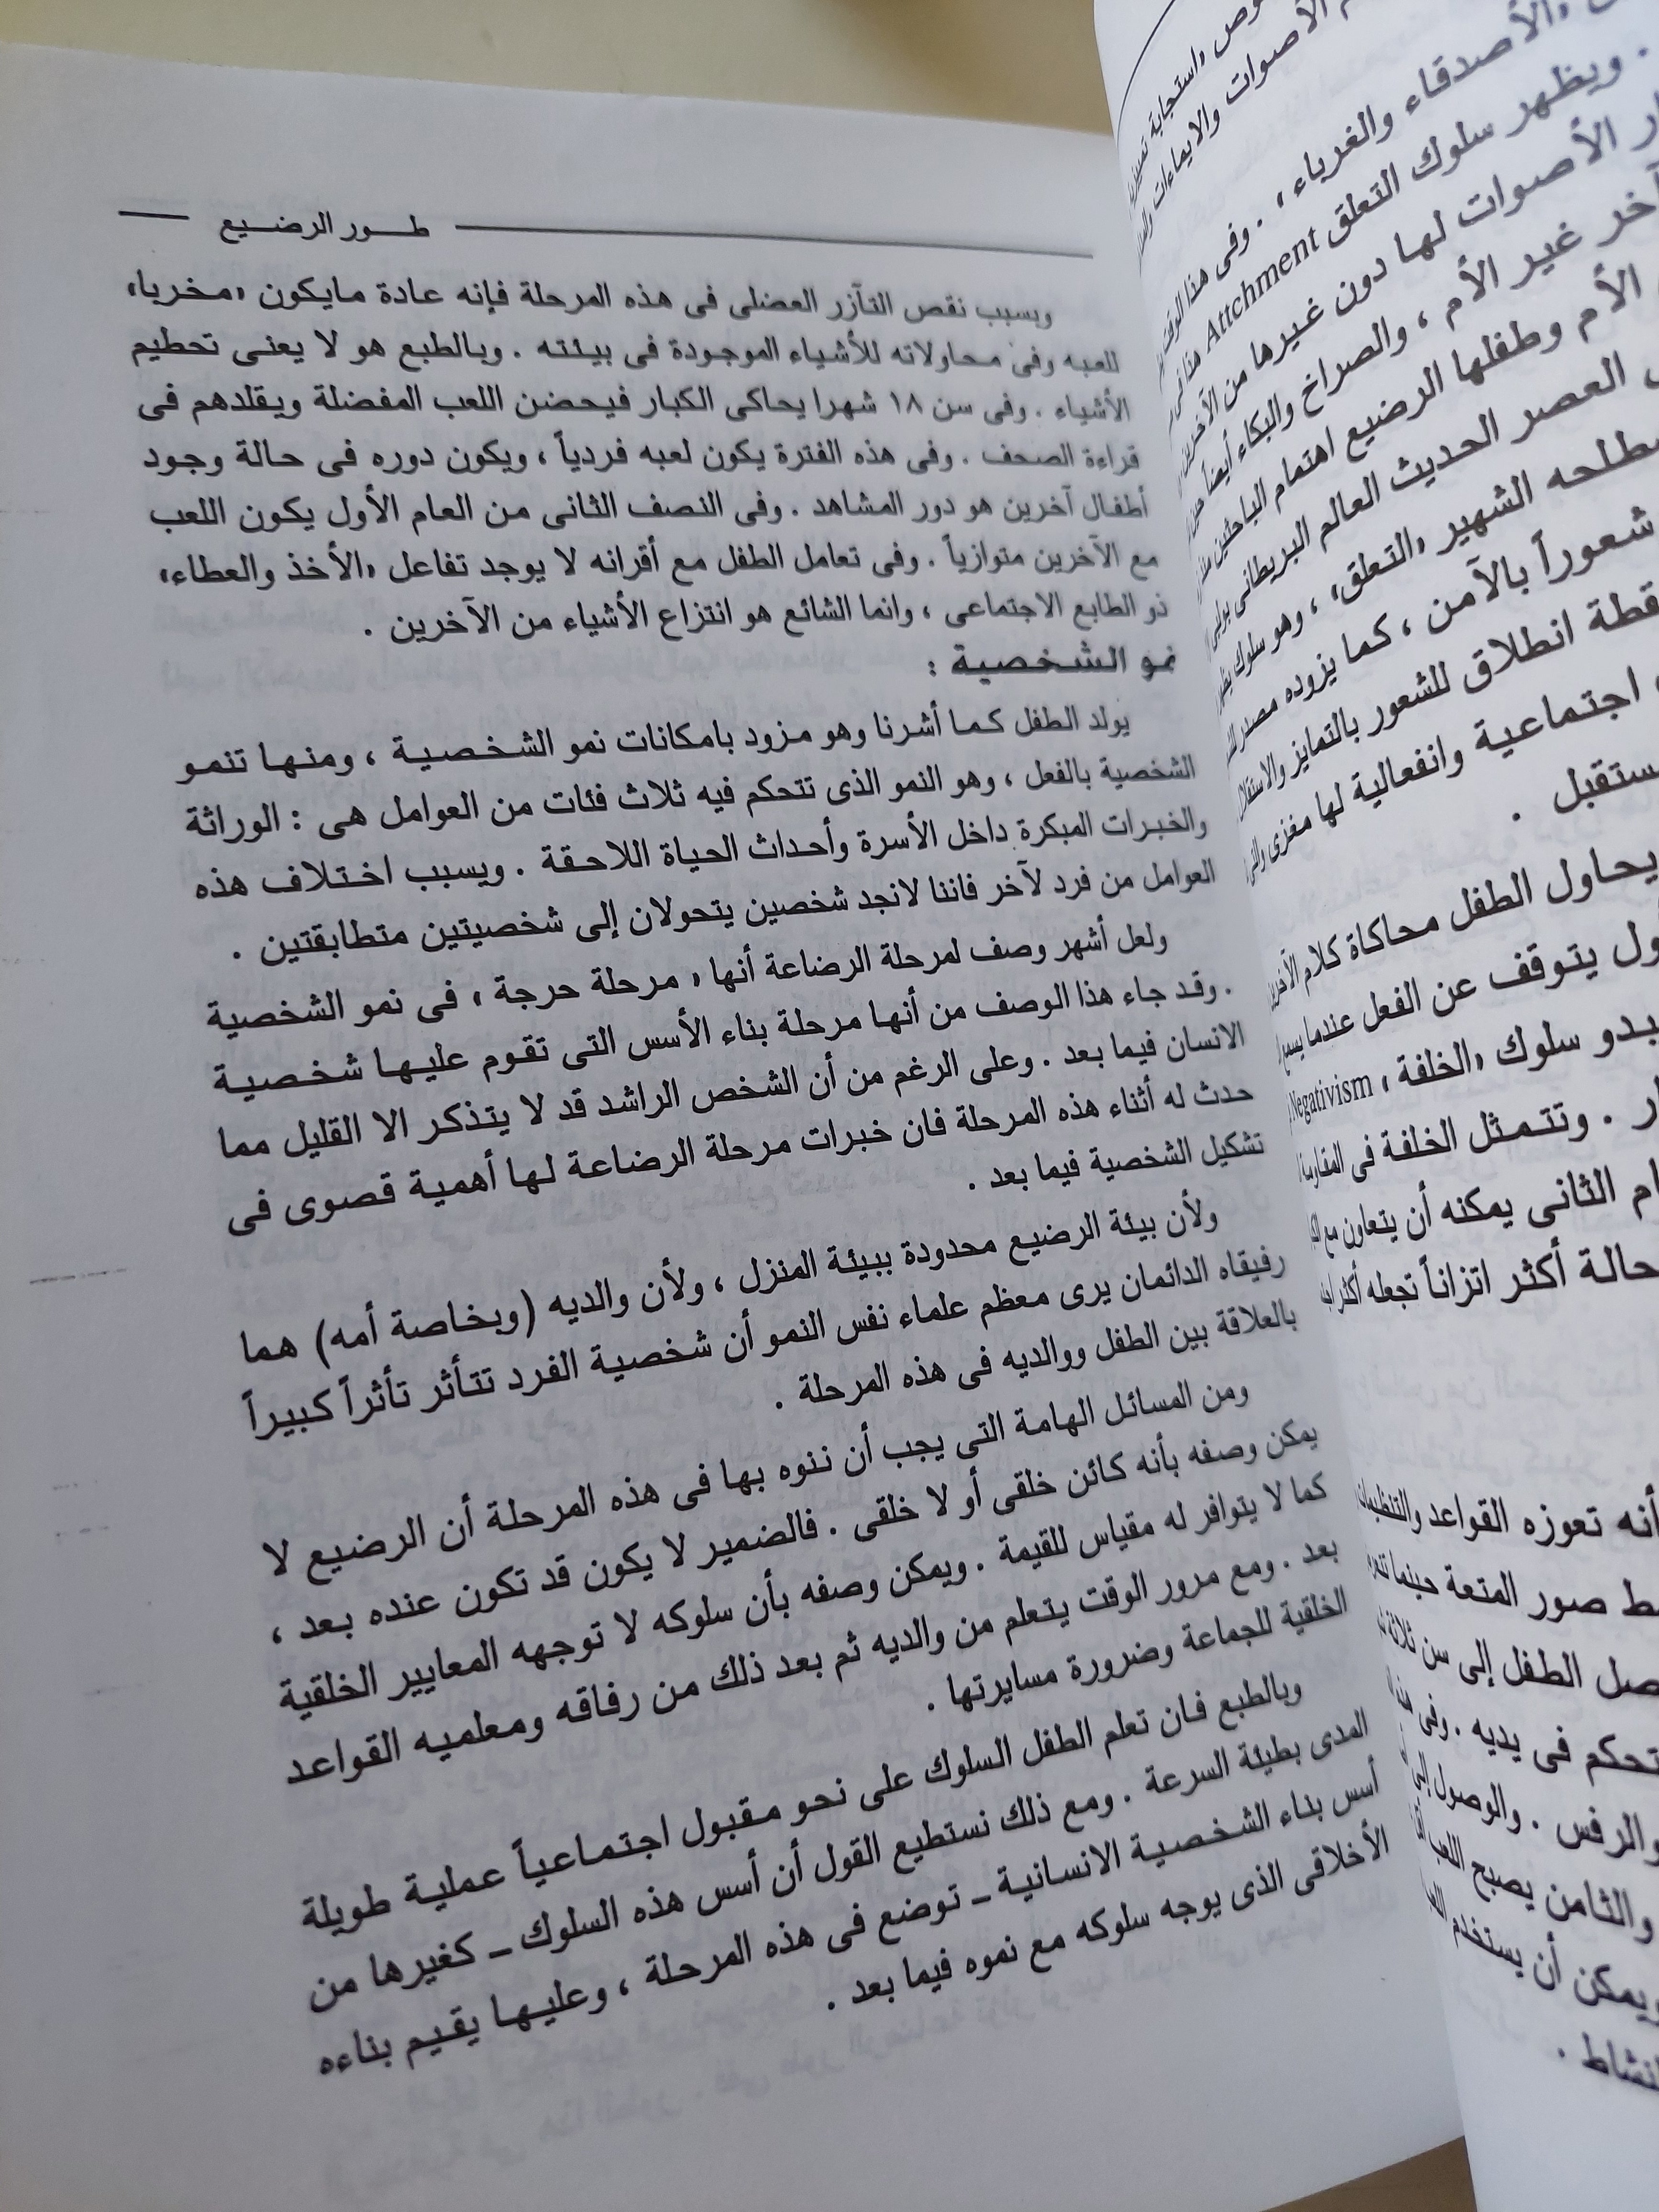 طـــور الرضـــيع
وبسبب نقص التآزر العضلى فى هذه المرحلة فإنه عادة مايكون «مخربا»
للعبه وفى محاولاته للأشياء الموجودة فى بيئته . وبالطبع هو لا يعنى تحطيم
الأشياء . وفى سن ١٨ شهرا يحاكى الكبار فيحضن اللعب المفضلة ويقلدهم فى
قراءة الصحف . وفى هذه الفترة يكون لعبه فردياً ، ويكون دوره فى حالة وجود
أطفال آخرين هو دور المشاهد . وفى النصف الثانى من العام الأول يكون اللعب
مع الآخرين متوازياً . وفى تعامل الطفل مع أقرانه لا يوجد تفاعل «الأخذ والعطاء»
ذو الطابع الاجتماعى ، وانما الشائع هو انتزاع الأشياء من الآخرين .
نمو الشخصية :
يولد الطفل كما أشرنا وهو مزود بامكانات نمو الشخصية ، ومنها تنمو
الشخصية بالفعل ، وهو النمو الذى تتحكم فيه ثلاث فئات من العوامل هى : الوراثة
والخبرات المبكرة داخل الأسرة وأحداث الحياة اللاحقة . ويسبب اختلاف هذه
العوامل من فرد لآخر فاننا لانجد شخصين يتحولان إلى شخصيتين متطابقتين .
ولعل أشهر وصف لمرحلة الرضاعة أنها « مرحلة حرجة » فى نمو الشخصية
. وقد جاء هذا الوصف من أنها مرحلة بناء الأسس التى تقوم عليها شخصية
الانسان فيما بعد . وعلى الرغم من أن الشخص الراشد قد لا يتذكر الا القليل مما
حدث له أثناء هذه المرحلة فان خبرات مرحلة الرضاعة لها أهمية قصوى فى
تشكيل الشخصية فيما بعد .
ولأن بيئة الرضيع محدودة ببيئة المنزل ، ولأن والديه (وبخاصة أمه) هما
رفيقاه الدائمان يرى معظم علماء نفس النمو أن شخصية الفرد تتأثر تأثراً كبيراً
بالعلاقة بين الطفل ووالديه فى هذه المرحلة .
ومن المسائل الهامة التى يجب أن ننوه بها فى هذه المرحلة أن الرضيع لا
يمكن وصفه بأنه كائن خلقى أو لا خلقى . فالضمير لا يكون قد تكون عنده بعد ،
كما لا يتوافر له مقياس للقيمة . ويمكن وصفه بأن سلوكه لا توجهه المعايير الخلقية
بعد . ومع مرور الوقت يتعلم من والديه ثم بعد ذلك من رفاقه ومعلميه القواعد
الخلقية للجماعة وضرورة مسايرتها .
وبالطبع فان تعلم الطفل السلوك على نحو مقبول اجتماعياً عملية طويلة
المدى بطيئة السرعة . ومع ذلك نستطيع القول أن أسس هذه السلوك ـ كغيرها من
أسس بناء الشخصية الانسانية ـ توضع فى هذه المرحلة ، وعليها يقيم بناءه
الأخلاقى الذى يوجه سلوكه مع نموه فيما بعد .
الأصوات والايماءات
والأصدقاء والغرباء ، . وفى هذا الوقت
. ويظهر سلوك التعلق Attchment
الأصوات لها دون غيرها من الآخرين
آخر غير الأم ، والصراخ والبكاء أيضاً
الأم وطفلها الرضيع اهتمام الباحثين
العصر الحديث العالم البريطانى
الشهير «التعلق» ، وهو سلوك
شعوراً بالآمن ، كما يزوده مصدر
انطلاق للشعور بالتمايز
اجتماعية وانفعالية لها مغزى
يحاول الطفل محاكاة كلام
يتوقف عن الفعل عندما
سلوك «الخلفة » Negativism
. وتتمثل الخلفة فى
الثانى يمكنه أن يتعاون مع
حالة أكثر اتزاناً تجعله أكثر
أنه تعوزه القواعد
صور المتعة حينما
الطفل إلى سن ثلاثة
فى يديه . وفى
والرفس . والوصول إلى
والثامن يصبح اللعب
ويمكن أن يستخدم